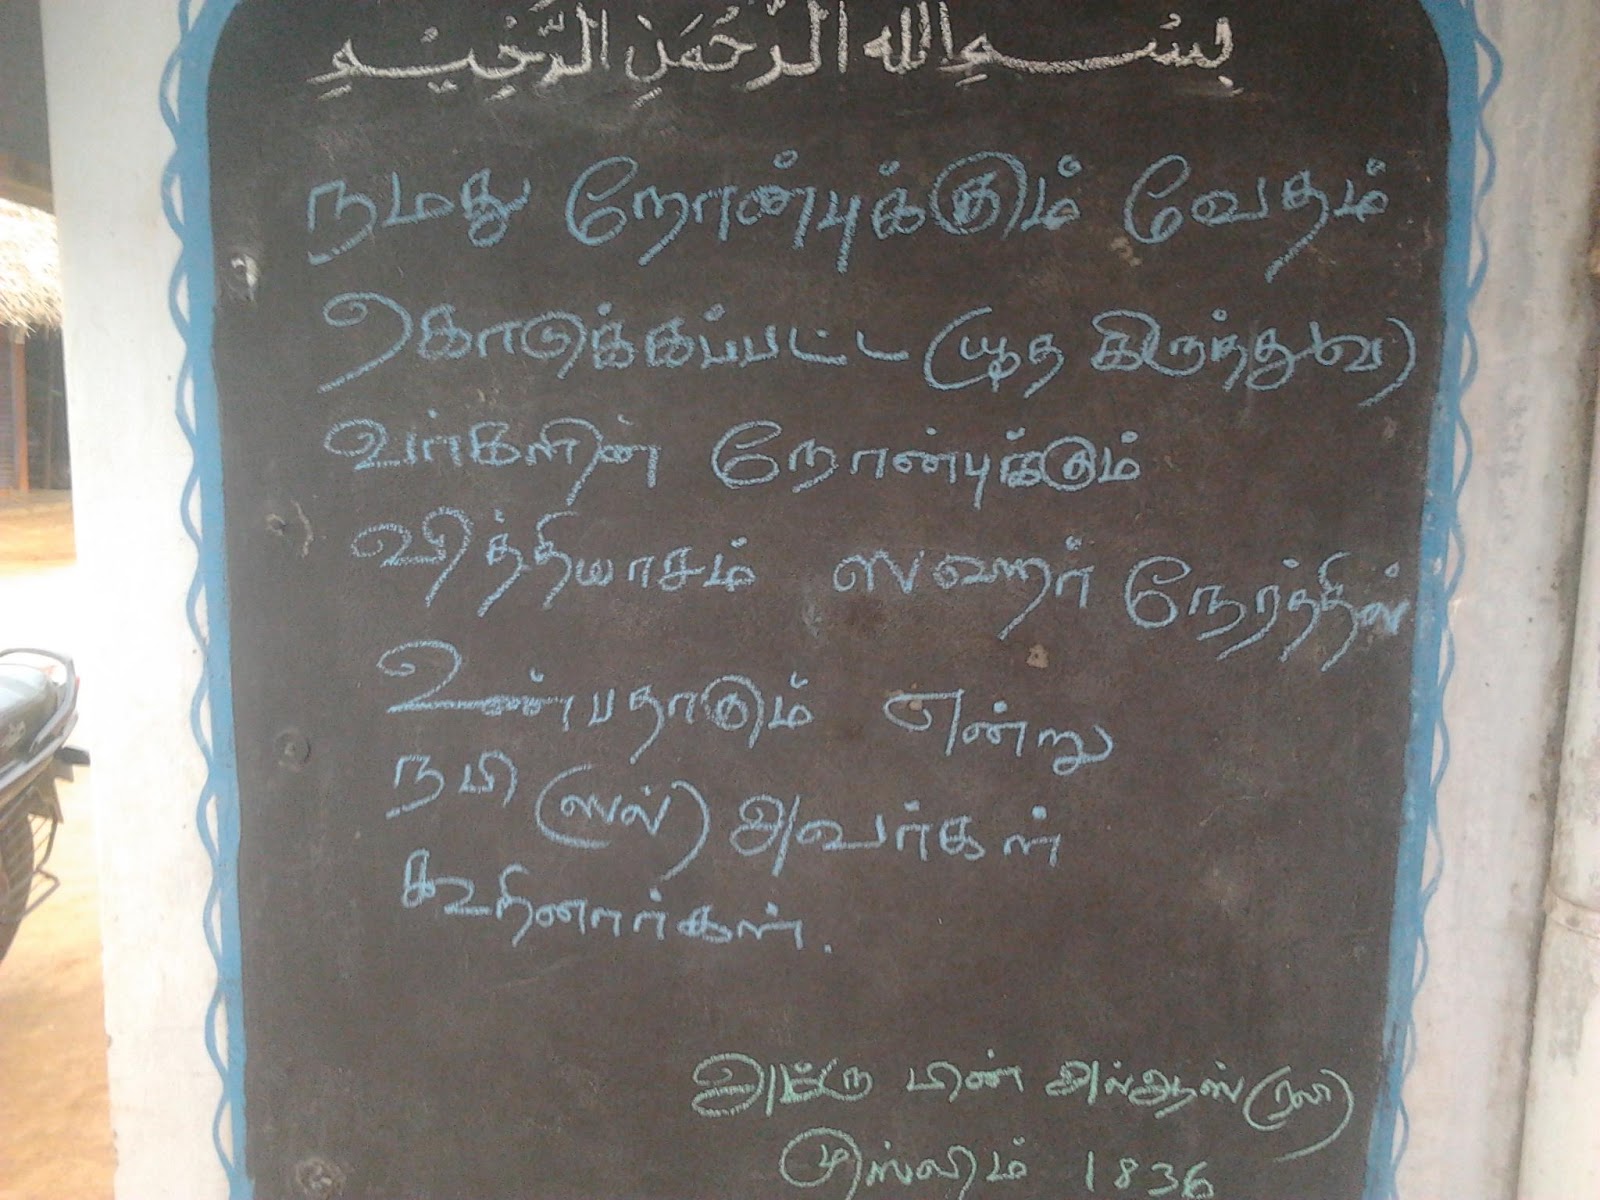 بِسْمِ اللهِ الرَّحْمَنِ الرَّحِيْمِ
நமது நோன்புக்கும் வேதம்
கொடுக்கப்பட்ட (யூத கிருந்துவ)
வர்களின் நோன்புக்கும்
வித்தியாசம் ஸஹர் நேரத்தில்
உண்பதாகும் என்று
நபி (ஸல்) அவர்கள்
கூறினார்கள்.
அம்ரு பின் அல்ஆஸ் (ரலி)
முஸ்லிம் 1836